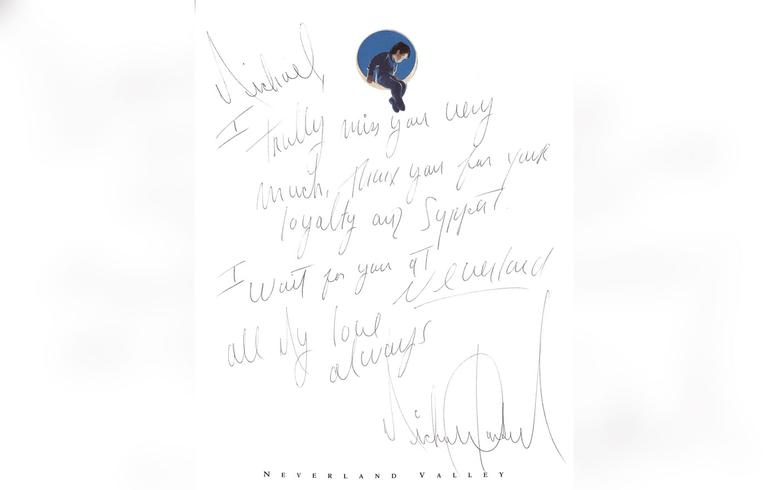 Michael,
I trully miss you very
much, thank you for your
loyalty and Support.
I wait for you at
Neverland
all My love
always
Michael Jackson
NEVERLAND VALLEY